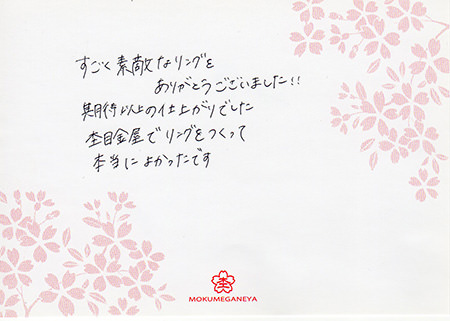 すごく素敵なリングを
ありがとうございました!!
期待以上の仕上がりでした
杢目金屋でリングをつくって
本当によかったです
杢
MOKUMEGANEYA